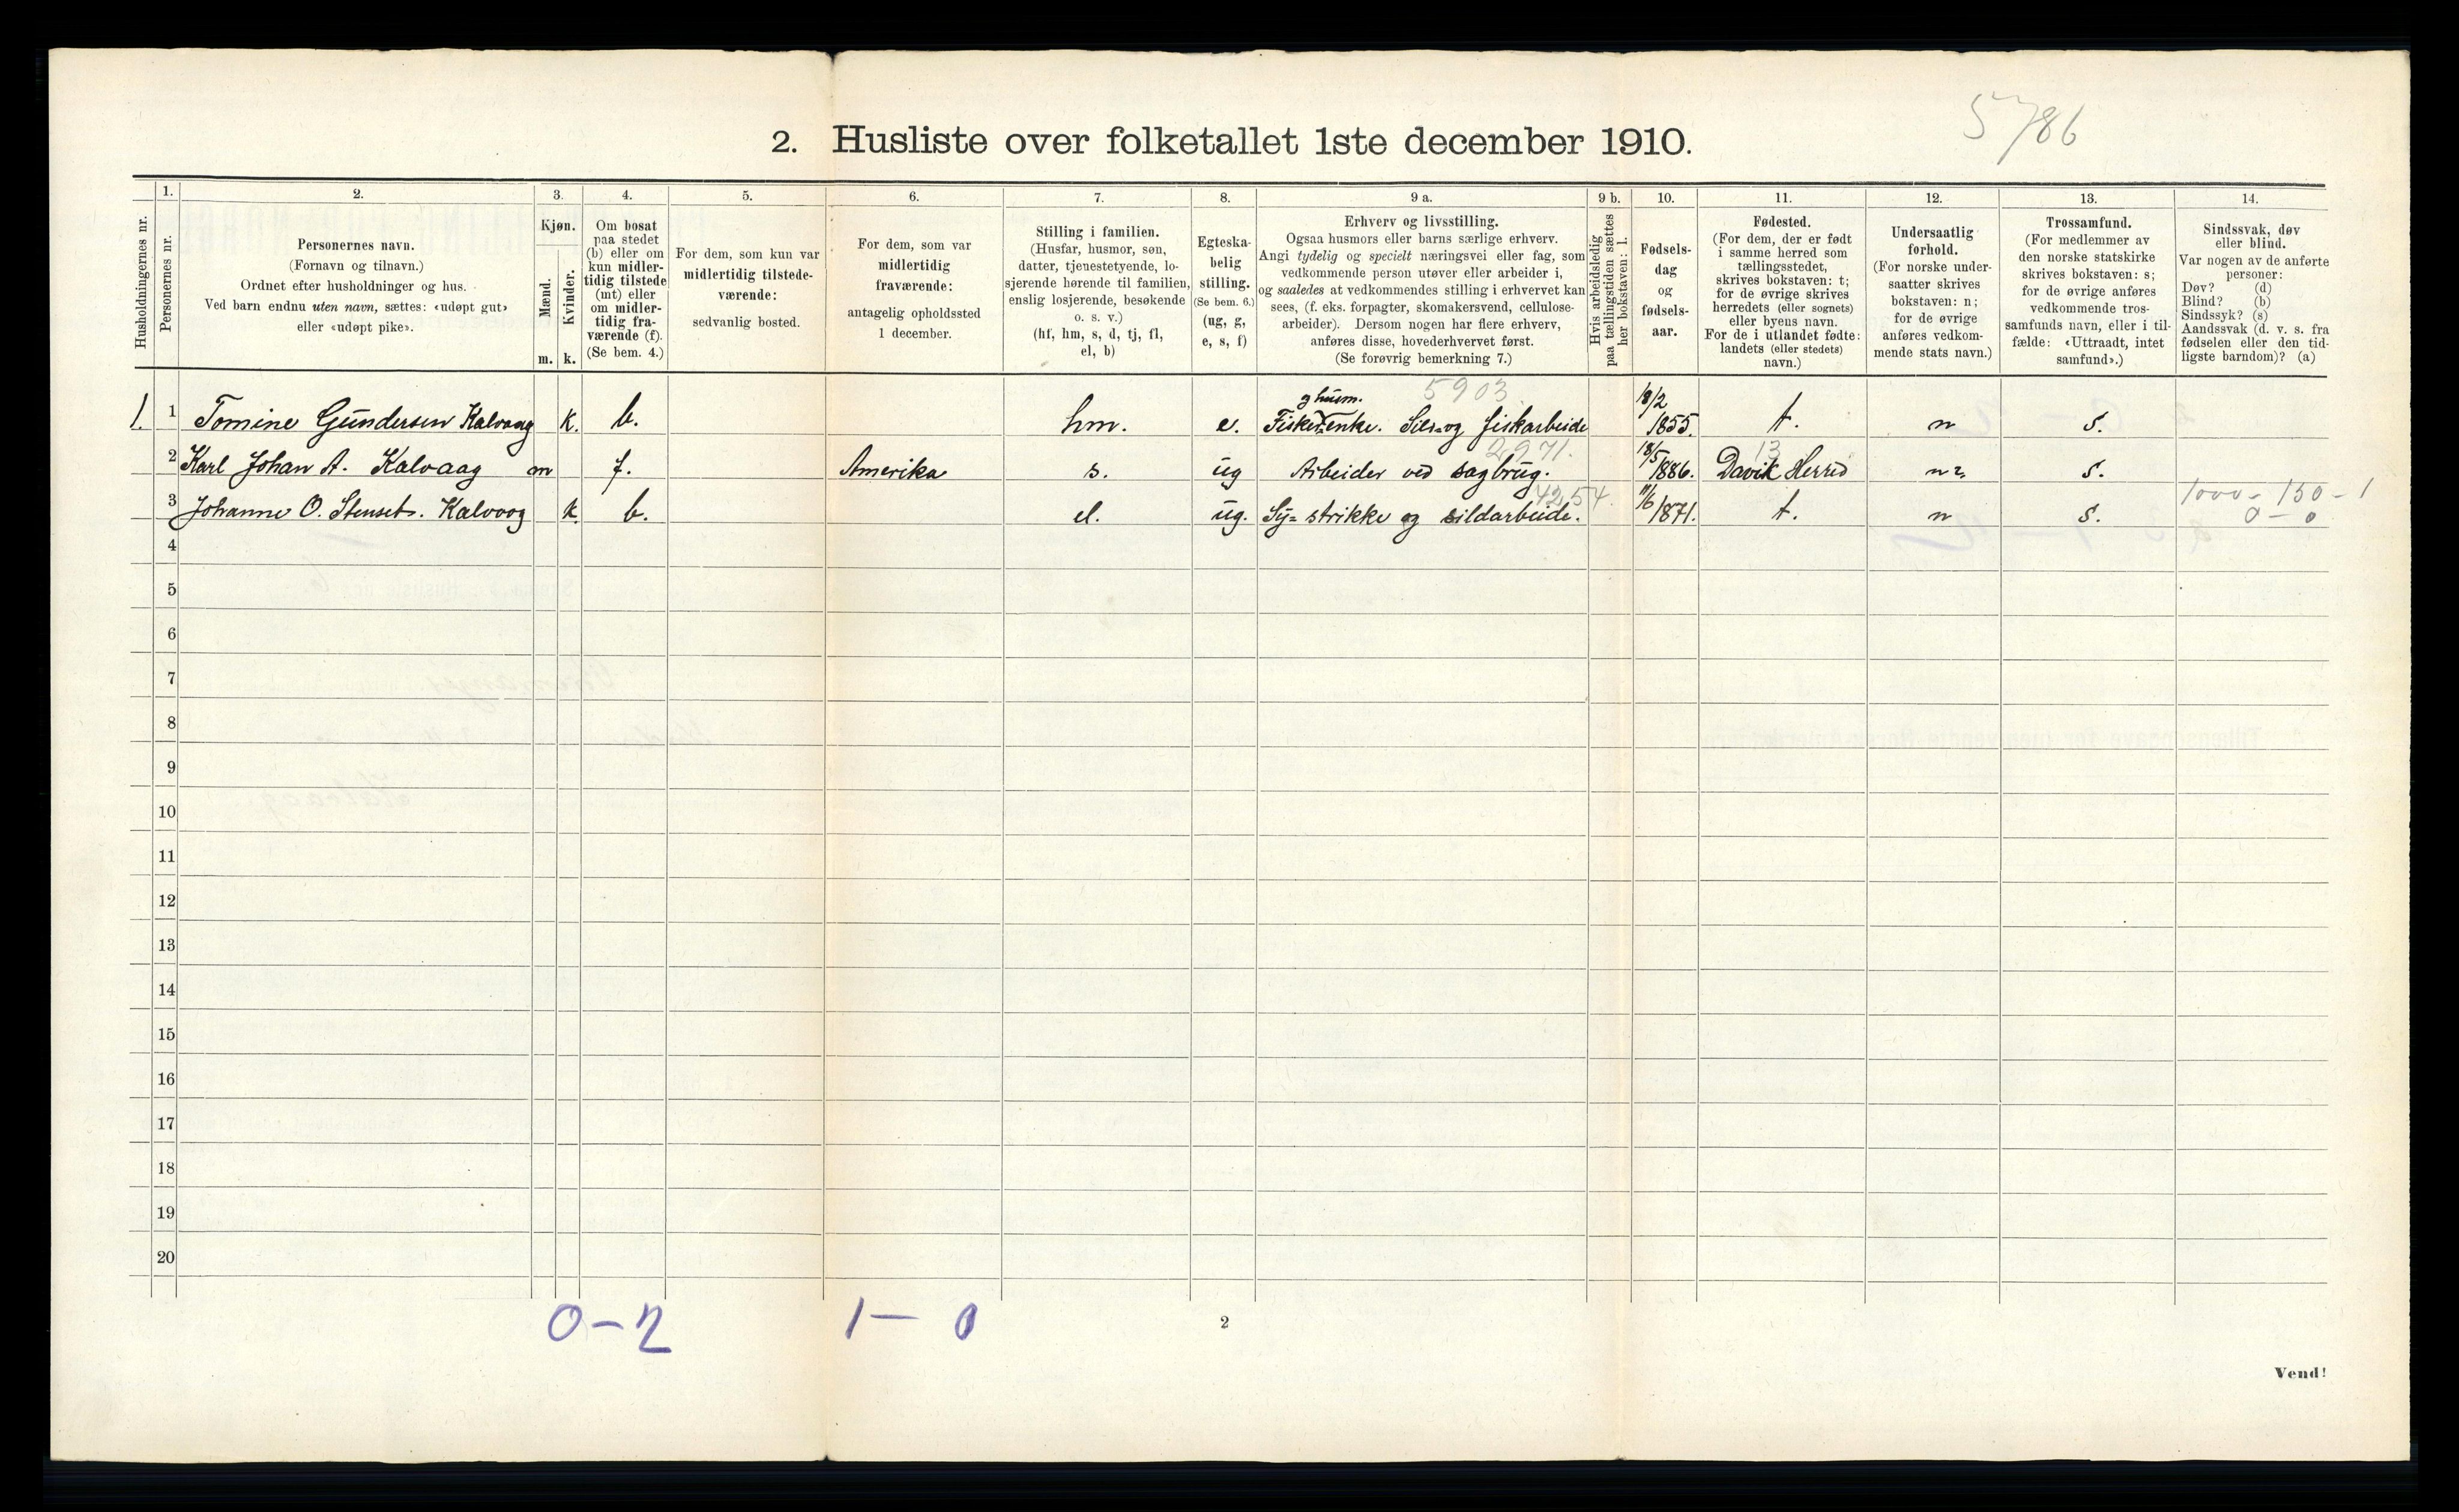 5786
2. Husliste over folketallet 1ste december 1910.
Husholdningernes nr.
1.
Personernes nr.
2.
Personernes navn.
(Fornavn og tilnavn.)
Ordnet efter husholdninger og hus.
Ved barn endnu uten navn, sættes: «udøpt gut»
eller «udøpt pike».
3.
Kjøn.
Mænd.
Kvinder.
m. k.
4.
Om bosat
paa stedet
(b) eller om
kun midler-
tidig tilstede
(mt) eller
om midler-
tidig fra-
værende (f).
(Se bem. 4.)
5.
For dem, som kun var
midlertidig tilstede-
værende:
sedvanlig bosted.
6.
For dem, som var
midlertidig
fraværende:
antagelig opholdssted
1 december.
7.
Stilling i familien.
(Husfar, husmor, søn,
datter, tjenestetyende, lo-
sjerende hørende til familien,
enslig losjerende, besøkende
o. s. v.)
(hf, hm, s, d, tj, fl,
el, b)
8.
Egteska-
belig
stilling.
(Se bem. 6.)
(ug, g,
e, s, f)
9 a.
Erhverv og livsstilling.
Ogsaa husmors eller barns særlige erhverv.
Angi tydelig og specielt næringsvei eller fag, som
vedkommende person utøver eller arbeider i,
og saaledes at vedkommendes stilling i erhvervet kan
sees, (f. eks. forpagter, skomakersvend, cellulose-
arbeider). Dersom nogen har flere erhverv,
anføres disse, hovederhvervet først.
(Se forøvrig bemerkning 7.)
9 b.
Hvis arbeidsledig
paa tællingstiden sættes
her bokstaven: l.
10.
Fødsels-
dag
og
fødsels-
aar.
11.
Fødested.
(For dem, der er født
i samme herred som
tællingsstedet,
skrives bokstaven: t;
for de øvrige skrives
herredets (eller sognets)
eller byens navn.
For de i utlandet fødte:
landets (eller stedets)
navn.)
12.
Undersaatlig
forhold.
(For norske under-
saatter skrives
bokstaven: n;
for de øvrige
anføres vedkom-
mende stats navn.)
13.
Trossamfund.
(For medlemmer av
den norske statskirke
skrives bokstaven: s;
for de øvrige anføres
vedkommende tros-
samfunds navn, eller i til-
fælde: «Uttraadt, intet
samfund».)
14.
Sindssvak, døv
eller blind.
Var nogen av de anførte
personer:
Døv? (d)
Blind? (b)
Sindssyk? (s)
Aandssvak (d. v. s. fra
fødselen eller den tid-
ligste barndom)? (a)
5903
1. 1 Tomine Gundersen Kalvaag k. b. hm. e. Fiskerenke. Sild og fiskarbeide 18/2 1855. t. n s.
2971. 13
2 Karl Johan A. Kalvaag m f. Amerika s. ug Arbeider ved sagbrug. 18/5 1886. Davik Herred n s.
4254. 1000 - 150 - 1
3 Johanne O. Stenset. Kalvaag k b. el. ug. Sy= strikke og sildarbeide. 11/6 1871. t. n s. 0 - 0
4
5
6
7
8
9
10
11
12
13
14
15
16
17
18
19
20
0-2 1- 0
2
Vend!